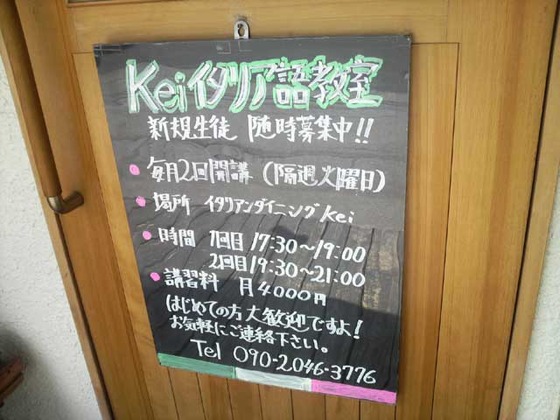 Kei イタリア語教室
新規生徒 随時募集中!!
毎月2回開講 (隔週火曜日)
場所 イタリアンダイニング Kei
時間 1回目 17:30〜19:00
2回目 19:30〜21:00
講習料 月4000円
はじめての方大歓迎ですよ!
お気軽にご連絡下さい。
Tel 090-2046-3776